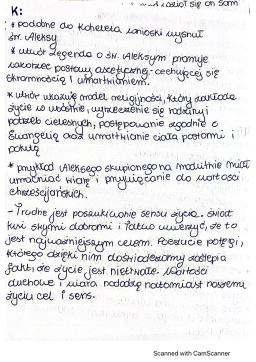 zasiół się on sam
K:
* podobne do Koheleta wnioski wysnuł
św. Aleksy
* utwór Legenda o św. Aleksym promuje
wzorzec postawy ascetycznej - cechującej się
skromnością i umartwianiem.
* utwór ukazuje model religijności, który zakłada
życie w ubóstwie, wyrzeczenie się rodziny i
potrzeb cielesnych, postępowanie zgodnie z
Ewangelią oraz umartwianie ciała postami i
pokutą
* przykład Aleksego skupionego na modlitwie miał
umacniać wiarę i przywiązanie do wartości
chrześcijańskich.
- Trudne jest poszukiwanie sensu życia. Świat
kusi swymi dobrami i łatwo uwierzyć, że to
jest najważniejszym celem. Poczucie potęgi,
którego dzięki nim doświadczamy zaślepia
fakt, że życie jest nietrwałe. Wartości
duchowe i wiara nadadzą natomiast naszemu
życiu cel i sens.
Scanned with CamScanner